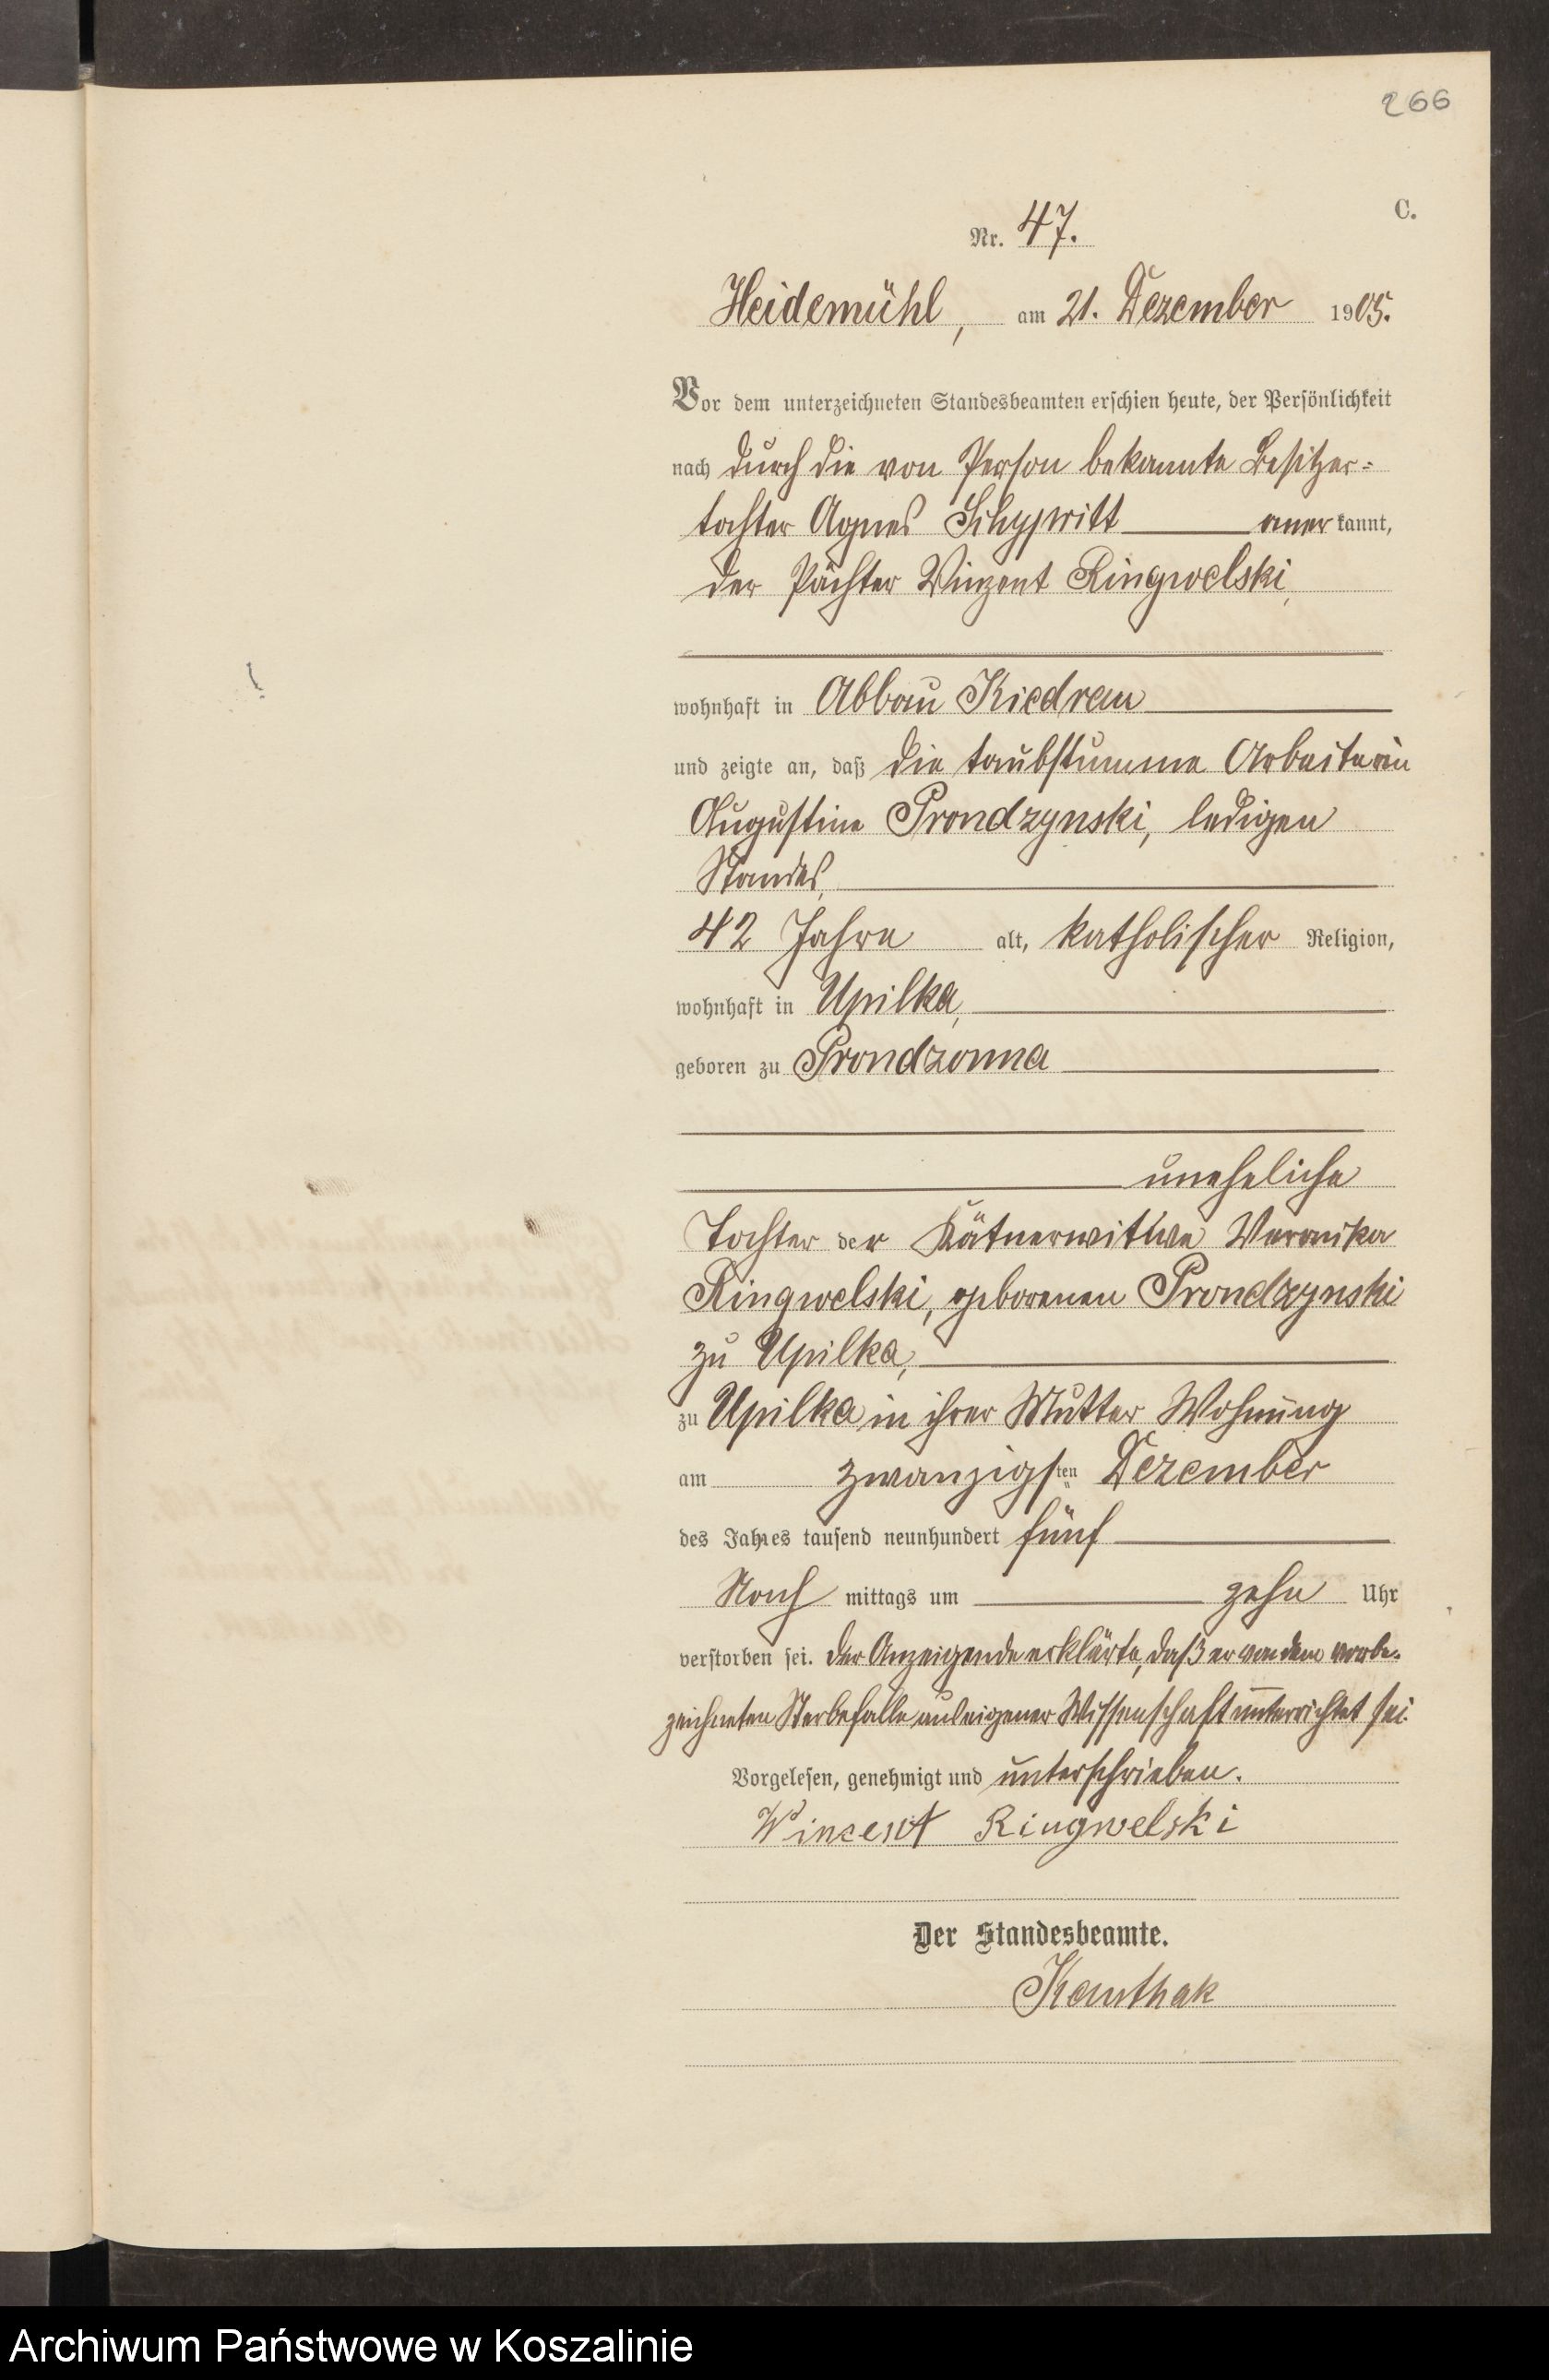 266
C.
Nr. 47.
Heidemühl, am 21. Dezember 1905.
Vor dem unterzeichneten Standesbeamten erschien heute, der Persönlichkeit
nach durch die von Person bekannte Besitzer-
tochter Agnes anerkannt,
der Pächter Vinzent Ringwelski,
wohnhaft in Abbau Kiedrau
und zeigte an, daß die taubstumme Arbeiterin
Augustine Prondzynski, ledigen
Standes,
42 Jahre alt, katholischer Religion,
wohnhaft in Upilka,
geboren zu Prondzonna
uneheliche
Tochter der Kätnerwittwe Veronika
Ringwelski, geborenen Prondzynski
zu Upilka,
zu Upilka in ihrer Mutter Wohnung
am zwanzigsten Dezember
des Jahres tausend neunhundert fünf
Nach mittags um zehn Uhr
verstorben sei. Der Anzeigende erklärte, daß er von dem vorbe-
zeichneten Sterbefalle aus eigener Wissenschaft unterrichtet sei.
Vorgelesen, genehmigt und unterschrieben.
Wincent Ringwelski
Der Standesbeamte.
Kauthak
Archiwum Państwowe w Koszalinie